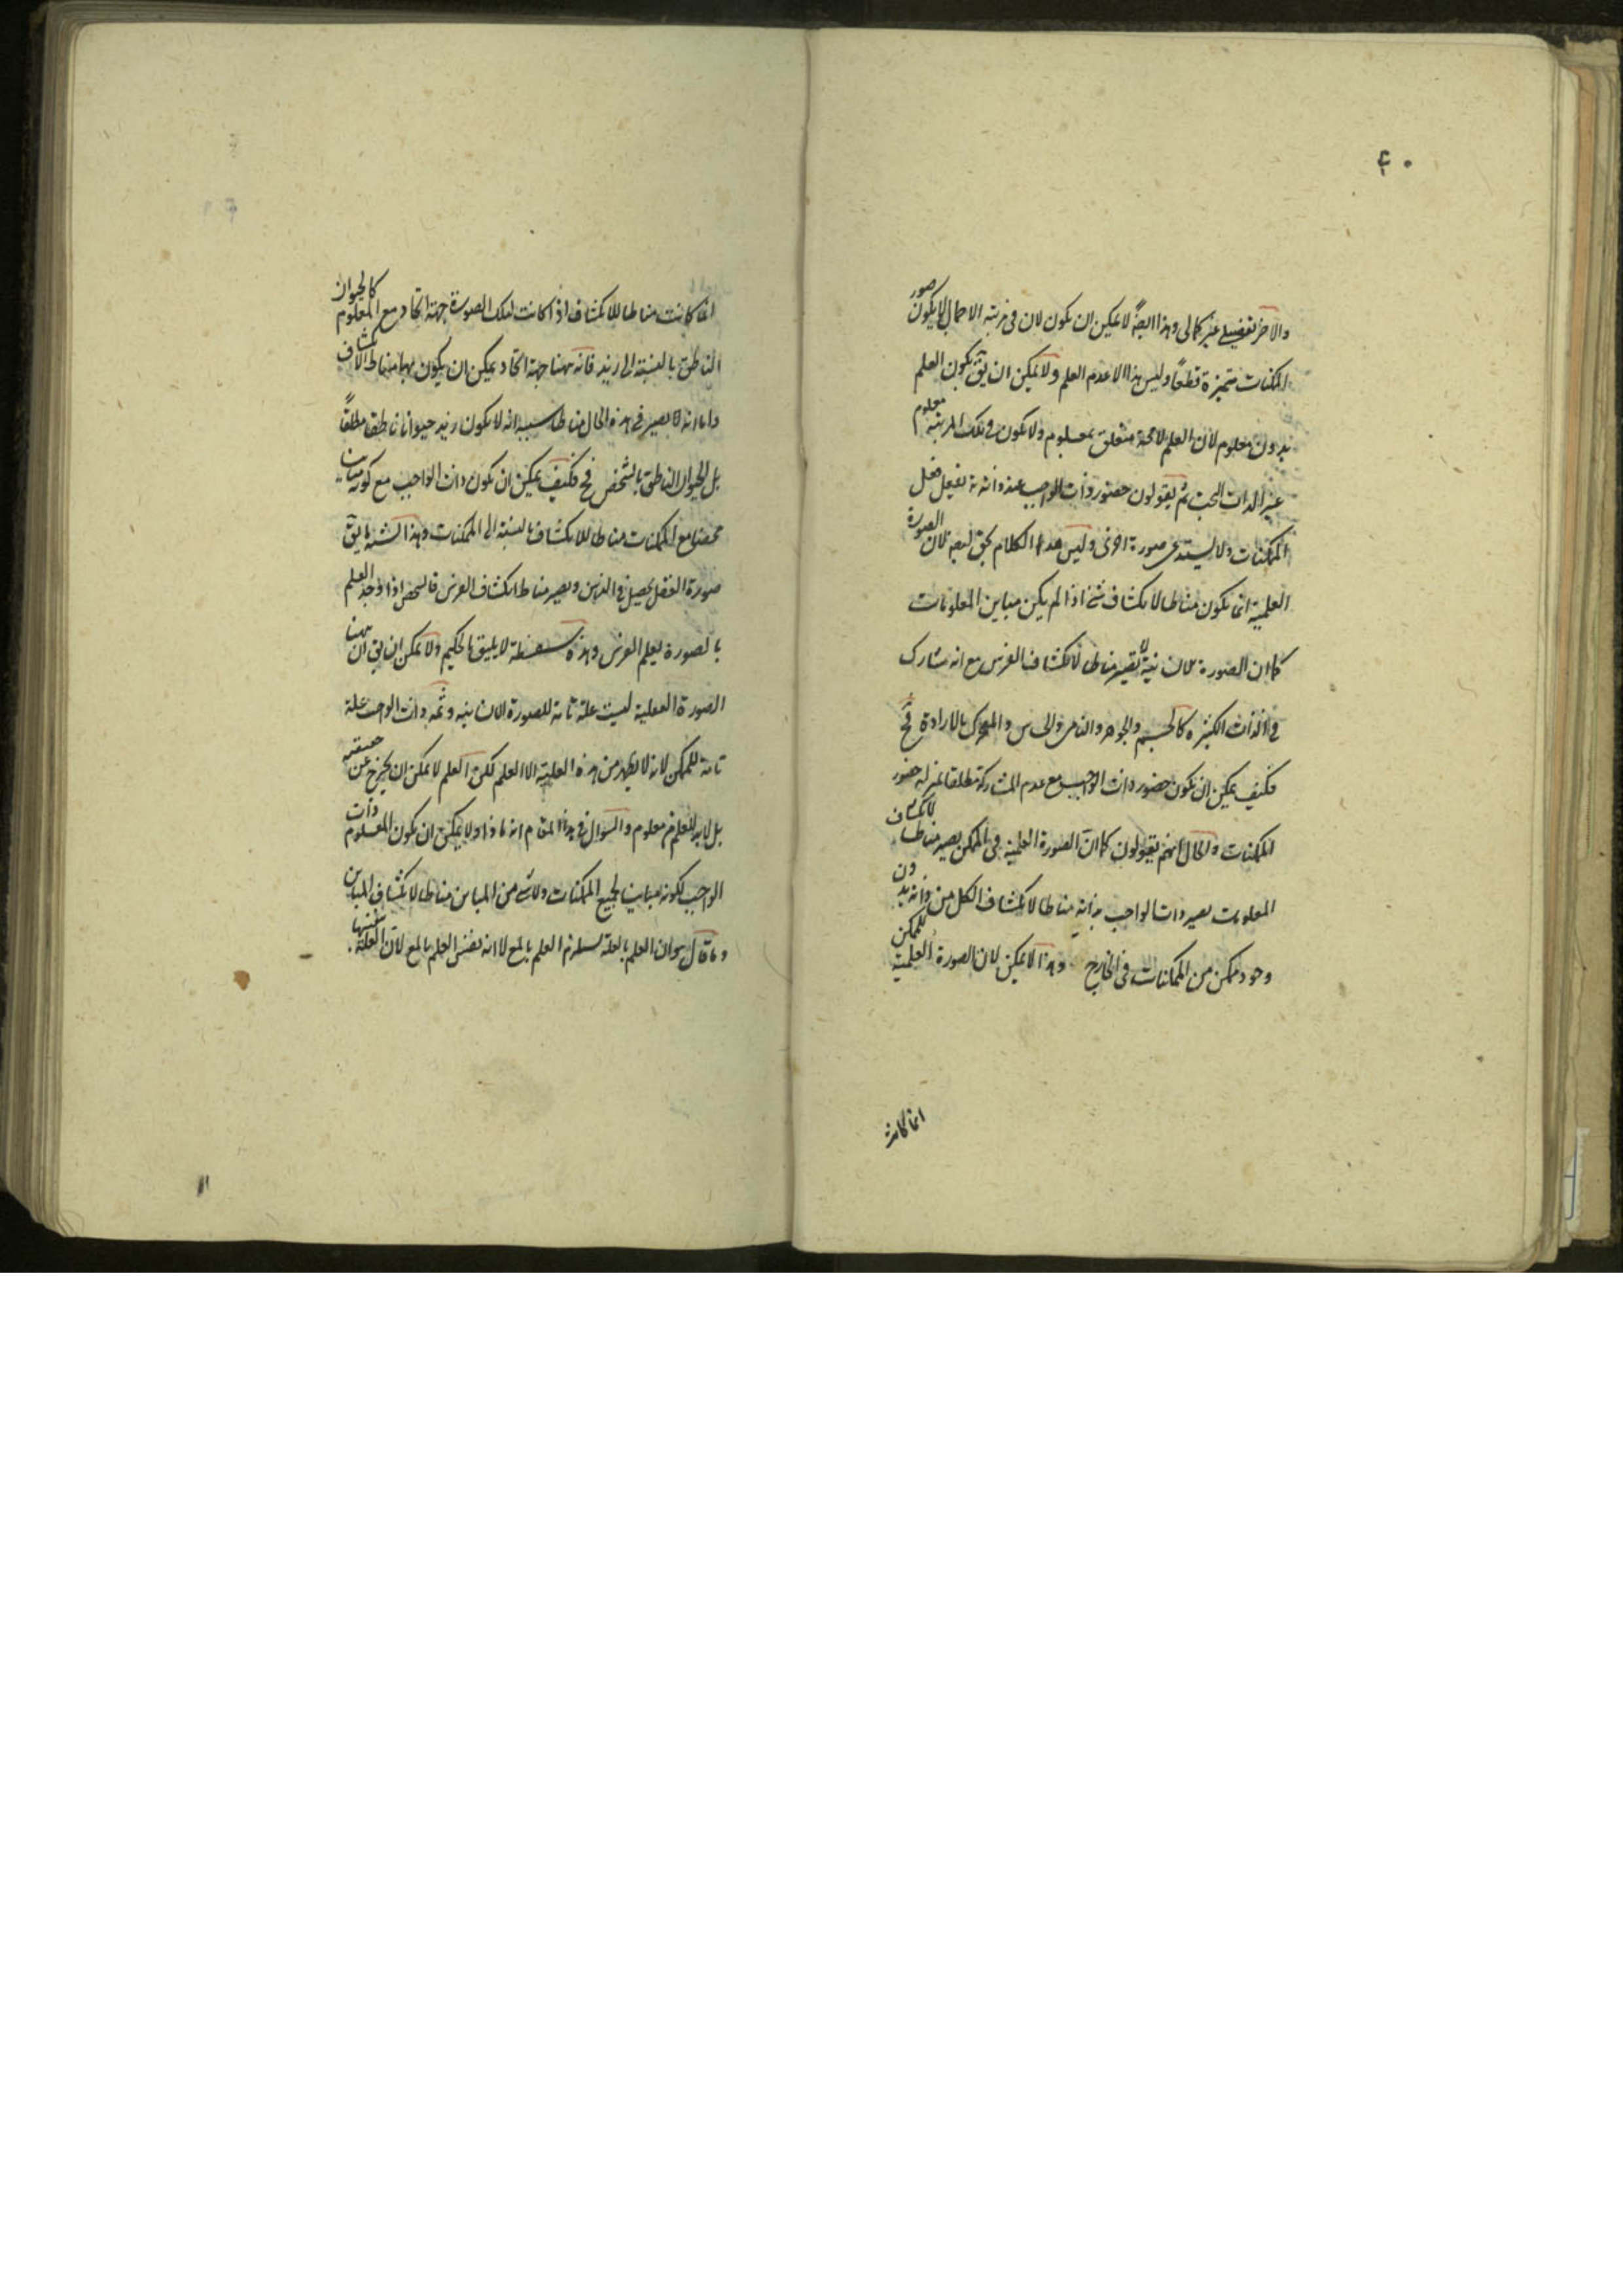 ٤٠
والاخر تفصيلي غير كمالي وهذا ايضاً لا يمكن ان يكون لان في مرتبة الاجمال لا يكون صور
الممكنات متميزة قطعاً وليس هذا الا عدم العلم ولا يمكن ان يق يكون العلم
بدون معلوم لان العلم لا محة متعلق بمعلوم ولا يكون في تلك المرتبة معلوم
غير الذات البحت ثم يقولون حضور ذات الواجب عند ذاته
الممكنات ولا يستدعي صورة اخرى وليس هذا الكلام بحق لان الصورة
العلمية انما يكون مناطا لانكشاف شئ اذا لم يكن مباين المعلومات
كما ان الصورة الانسانية لا تصير مناطا لانكشاف الفرس مع انه شارك
في الذات الكثيرة كالجسم والجوهر والنامي والحساس والمتحرك بالارادة فح
فكيف يمكن ان يكون حضور ذات الواجب مع عدم المشاركة مطلقا بمنزلة حضور
الممكنات والحال انهم يقولون كما ان الصورة العلمية في الممكن يصير مناطا لانكشاف
المعلومات يصير ذات الواجب بذاته مناطا لانكشاف الكل من ذاته بدون
وجود ممكن من الممكنات في الخارج وهذا لا يمكن لان الصورة العلمية للممكن
انما كانت
انما كانت مناطا للانكشاف اذا كانت لتلك الصورة جهة اتحاد مع المعلوم كالحيوان
الناطق بالنسبة الى زيد فانه ههنا جهة اتحاد يمكن ان يكون بها مناط الانكشاف
واما انه لا يصير في هذه الحال مناطا سببه انه لا يكون زيد حيوانا ناطقا مطلقاً
بل الحيوان الناطق بالتشخص فح فكيف يمكن ان يكون ذات الواجب مع كونه مباينا
محضا مع الممكنات مناطا للانكشاف بالنسبة الى الممكنات وهذا اشبه بما يق
صورة الفصل يحصل في الذهن ويصير مناط انكشاف الفرس فالشخص اذا وجد العلم
بالصورة يعلم الفرس وهذه سفسطة لا يليق بالحكيم ولا يمكن ان يق ان ههنا
الصورة العقلية ليست علة تامة للصورة الانسانية وثمه ذات الواجب علة
تامة للممكن لانه لا يظهر من هذه العلية الا العلم لكن العلم لا يمكن ان يخرج عن حقيقته
بل لابد للعلم من معلوم والسؤال في هذا المقام انه ماذا ولا يمكن ان يكون المعلوم ذات
الواجب لكونه مباين لجميع الممكنات ولا شئ من المباين مناطا لانكشاف المباين
وما قال هو ان العلم بالعلة يستلزم العلم بالمع لا انه نفس العلم بالمع لان العلة نفسها